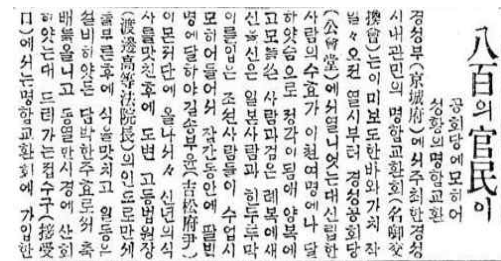 八百의官民이
공회당에모히어
성황의명함교환
경성부(京城府)에서주최한경성
시내관민의명함교환회(名啣交
換會)는이미보도한바와가치작
일오전 열시부터 경성공회당
(公會堂)에서열니엇는대신립한
사람의수효가 이천여명에나 달
하얏슴으로 정각이됨애 양복에
고모를쓴 사람과검은 례복에새
신을신은 일본사람과 힌두루막
이를입은 조선사람들이 수업시
모히어들어서 잠간동안에 팔백
명에달하야길송부윤(吉松府尹)
이몬저단에 올나서서 신년의식
사를맛친후에 도변 고등법원장
(渡邊高等法院長)의인도로만세
를부른후에 식을맛치고 일동은
설비하얏든 담박한주효로써 축
배를올니고 동열한시경에 산회
하얏는대 드러가는접수구(接受
口)에서는명함교환회에 가입한